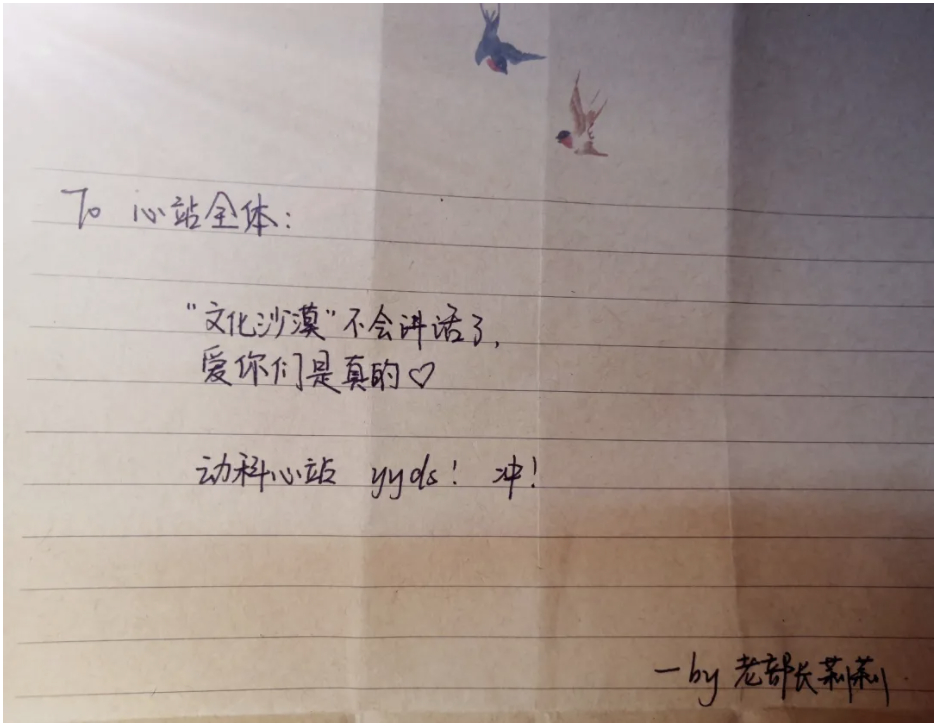 To 心站全体:
"文化沙漠"不会讲话了,
爱你们是真的♡
动科心站 yyds! 冲!
—by 老部长莉莉